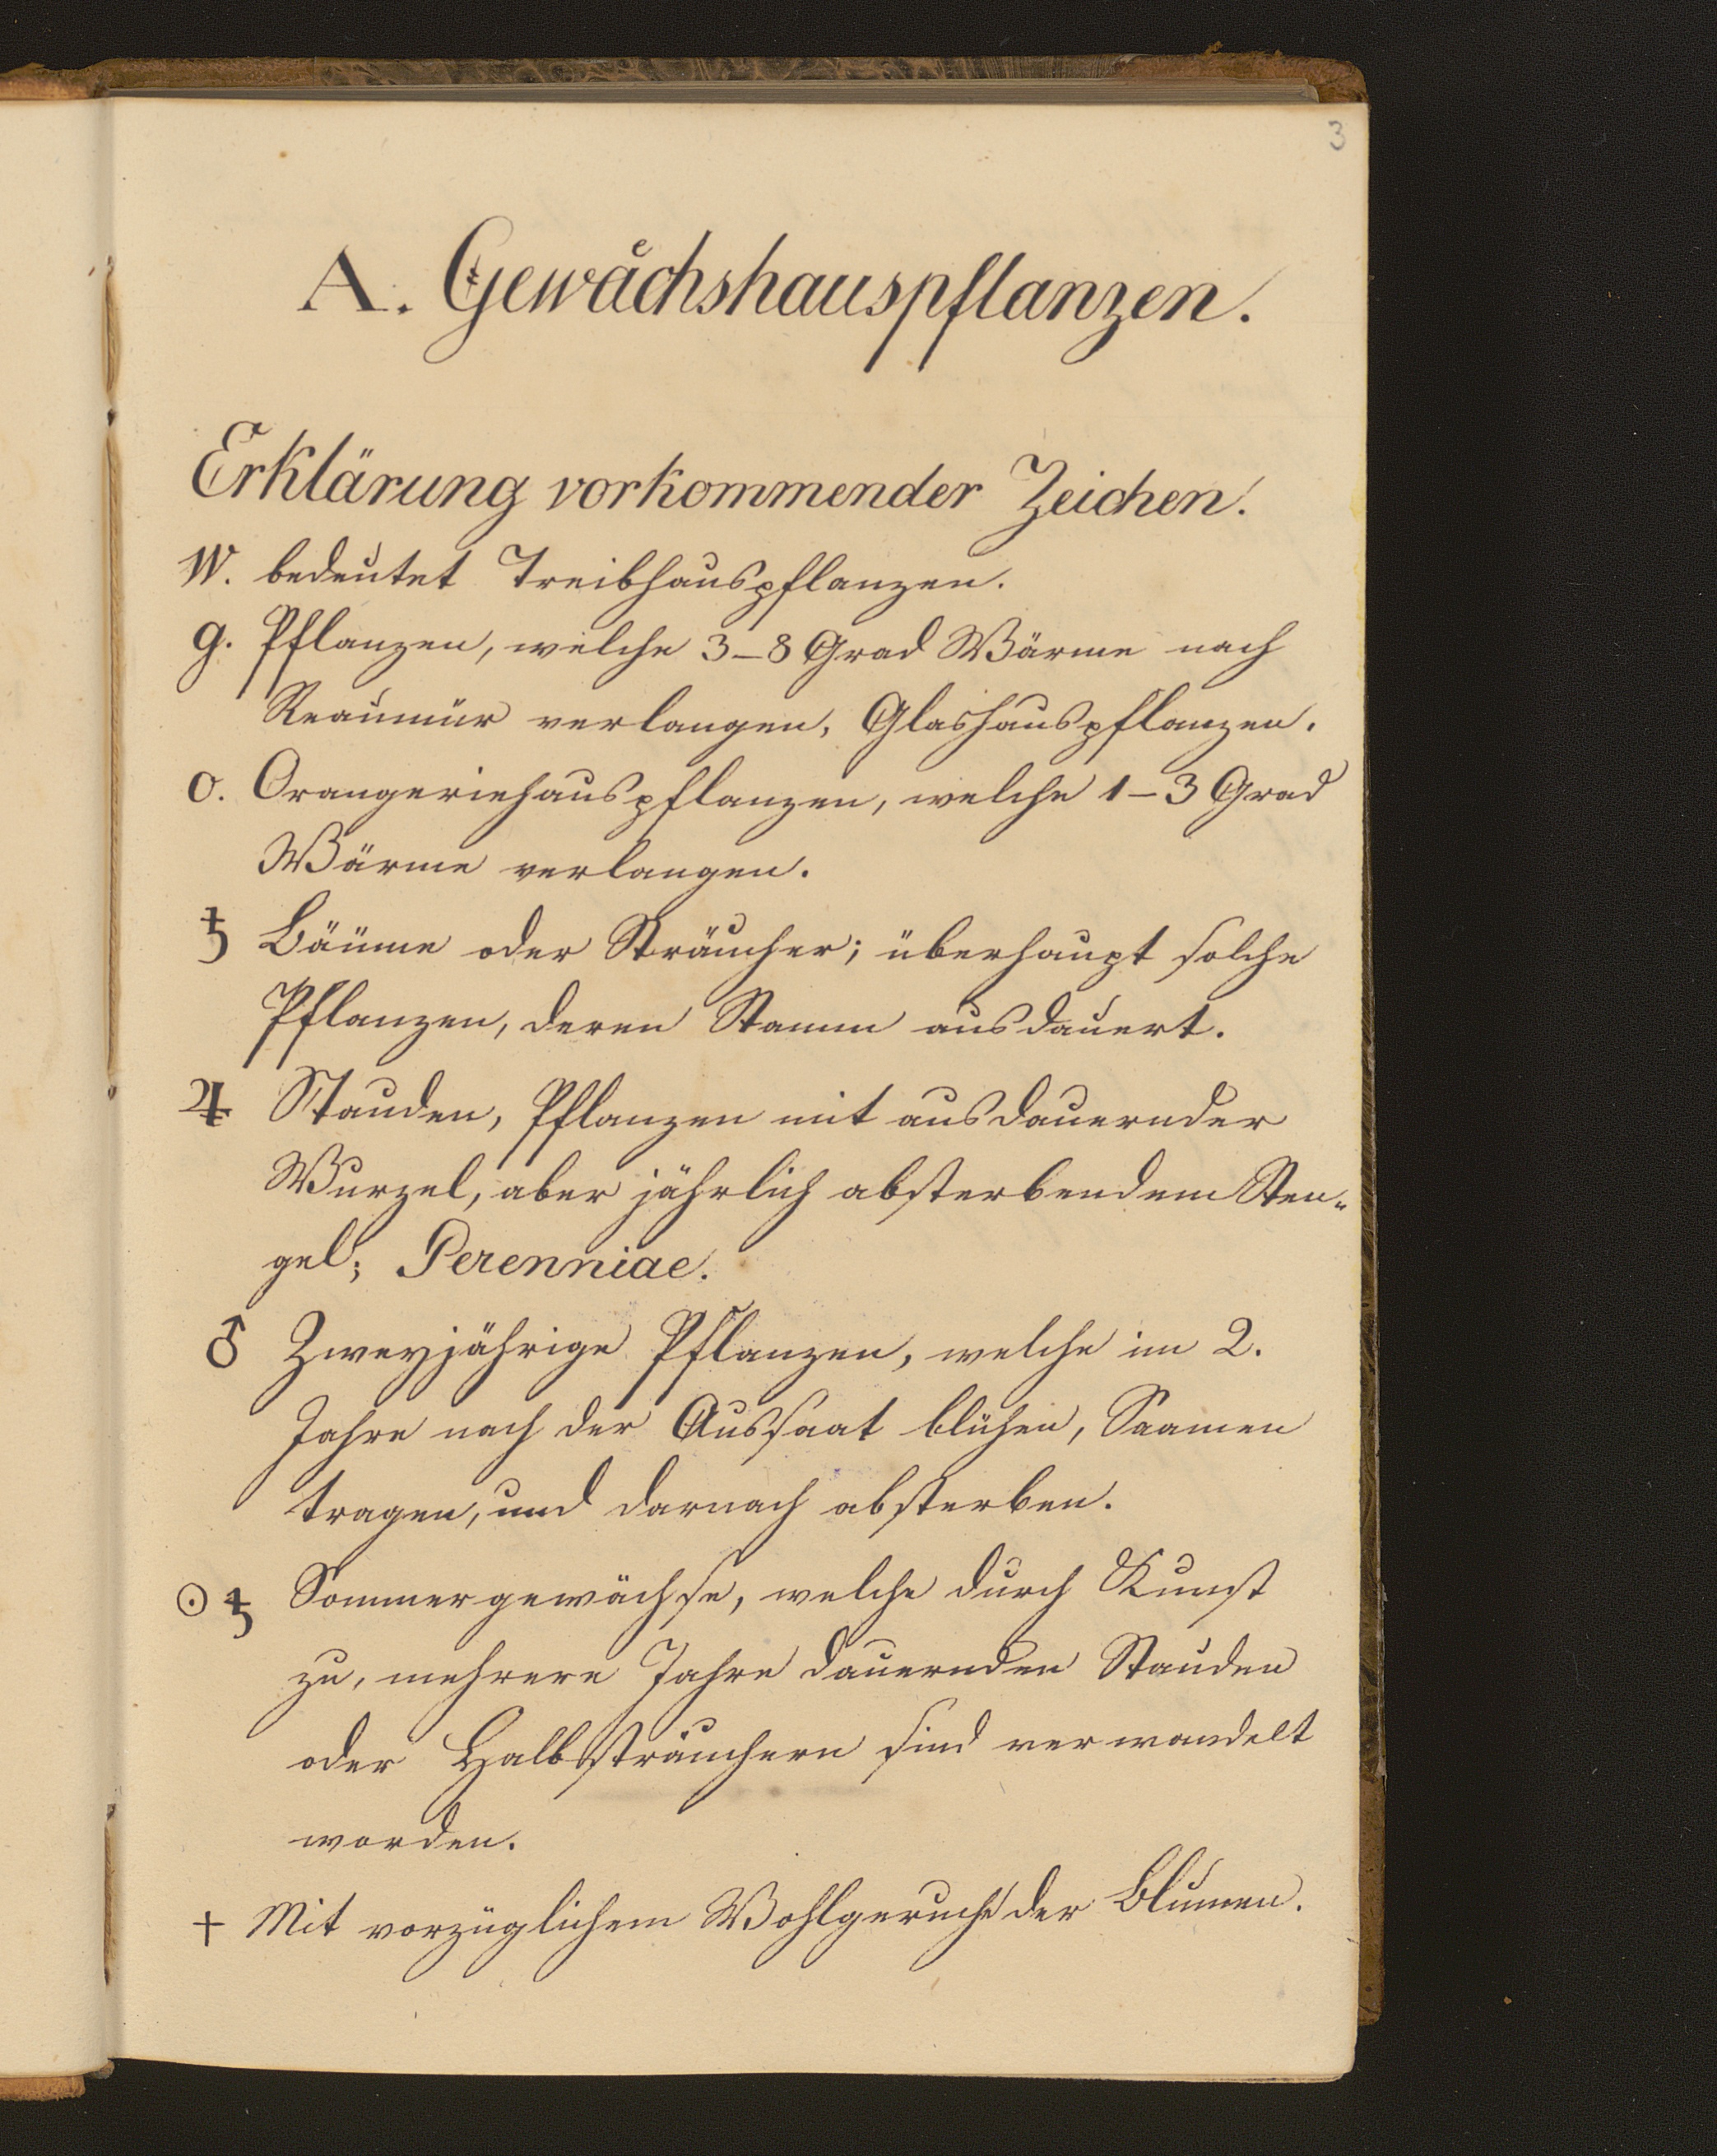 3
A. Gewächshauspflanzen.
Erklärung vorkommender Zeichen.
W. bedeutet Treibhauspflanzen.
g. Pflanzen, welche 3–8 Grad Wärme nach
Reaumür verlangen, Glashauspflanzen.
O. Orangeriehauspflanzen, welche 1–3 Grad
Wärme verlangen.
♄ Bäume oder Sträucher; überhaupt solche
Pflanzen, deren Stamm ausdauert.
♃ Stauden, Pflanzen mit ausdauernder
Wurzel, aber jährlich absterbendem Sten-
gel; Perenniae.
♂ Zweyjährige Pflanzen, welche im 2.
Jahre nach der Aussaat blühen, Saamen
tragen, und darnach absterben.
☉ ♄ Sommergewächse, welche durch Kunst
zu, mehrere Jahre dauernden Stauden
oder Halbsträuchern sind verwandelt
worden.
† Mit vorzüglichem Wohlgeruche der Blumen.